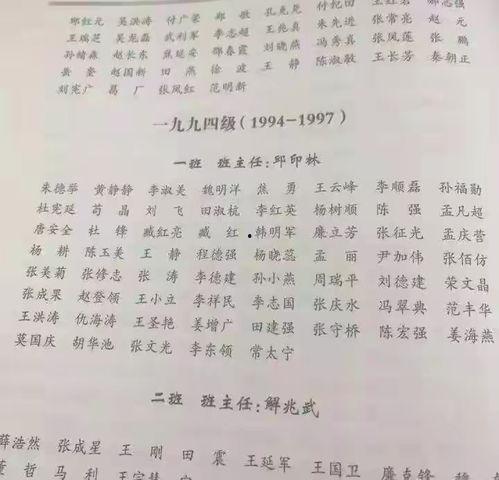 邴红元 吴洪涛 付广荣 郑敏 孔凡见
王瑞芝 吴龙磊 武利军 李志超 王兆真 朱先进 张常亮 赵元
孙绪森 赵长东 焦延安 邵春霞 刘晓燕 冯秀真 张凤莲 张鹏
黄奎 赵国新 田燕 徐波 王静 陈淑敏 王长芳 秦朝正
刘宪广 昌厂 张凤红 范明新
一九九四级(1994-1997)
一班 班主任:邱印林
朱德攀 黄静静 李淑美 魏明洋 焦勇 王云峰 李顺磊 孙福勋
杜宪延 苟晶 刘飞 田淑杭 李红英 杨树顺 陈强 孟凡超
唐安全 杜锋 臧红亮 臧红 韩明军 廉立芳 张征光 孟庆营
杨耕 陈玉美 王静 程德强 杨晓蕊 孟丽 尹加伟 张佰仿
张美菊 张修志 张涛 李德建 孙小燕 周瑞平 刘德建 荣文晶
张成果 赵登领 王小立 李祥民 李志国 张庆水 冯翠典 范丰华
王洪涛 仇海涛 王圣艳 姜增广 田建强 张守桥 陈宏强 姜海燕
莫国庆 胡华池 张文光 李东领 常太宁
二班 班主任:解兆武
薛浩然 张成星 王刚 田震 王延军 王国卫 廉克锋 魏
董哲 马利